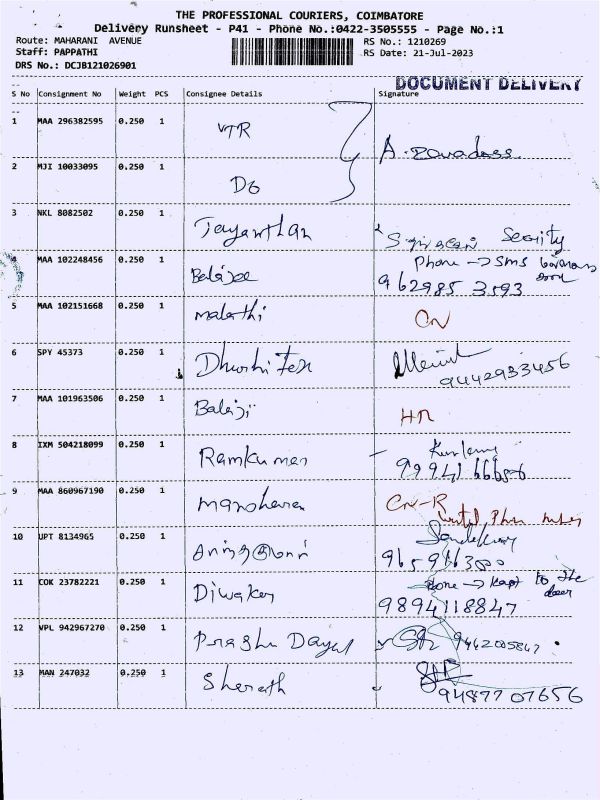 THE PROFESSIONAL COURIERS, COIMBATORE
Delivery Runsheet - P41 - Phone No.:0422-3505555 - Page No.:1
Route: MAHARANI AVENUE RS No.: 1210269
Staff: PAPPATHI RS Date: 21-Jul-2023
DRS No.: DCJB121026901
DOCUMENT DELIVERY
S No Consignment No Weight PCS Consignee Details Signature
1 MAA 296382595 0.250 1 VTR
2 MJI 10033095 0.250 1 Do
3 NKL 8082502 0.250 1 Jayanthan
MAA 102248456 0.250 1 Balajee Phone → SMS
962985 3593
5 MAA 102151668 0.250 1 Malathi CN
6 SPY 45373 0.250 1 Dhuthi Tex
9442933456
7 MAA 101963506 0.250 1 Balaji HR
8 IXM 504218099 0.250 1 Ramkumar
99941 66656
9 MAA 860967190 0.250 1 Manoharan CN-R
10 UPT 8134965 0.250 1
11 COK 23782221 0.250 1 Diwaker → kept to the door
9894118847
12 VPL 942967270 0.250 1 Prabhu Dayal 9442005847
13 MAN 247032 0.250 1 Sharath
94877 07656